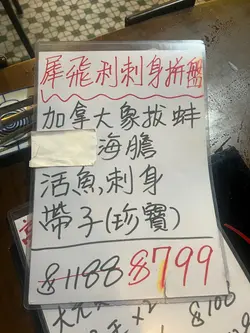 犀飛利刺身拼盤
加拿大象拔蚌
海膽
活魚刺身
帶子(珍寶)
$1188 $799
$100